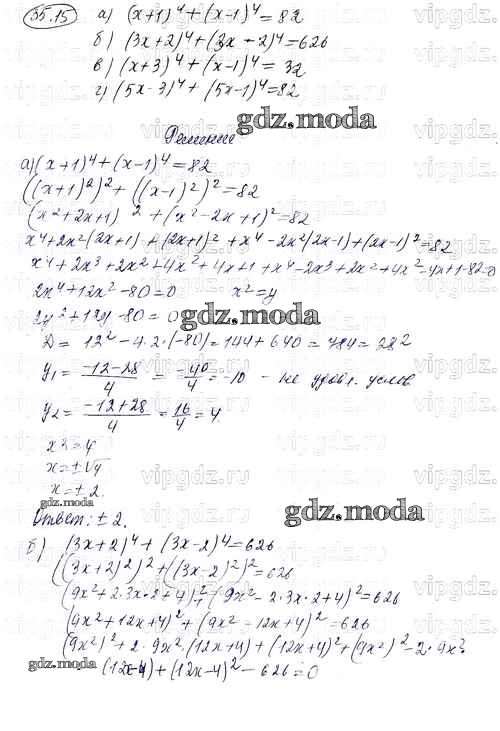 35.15 а) (x+1)⁴+(x-1)⁴=82
б) (3x+2)⁴+(3x-2)⁴=626
в) (x+3)⁴+(x-1)⁴= 32
г) (5x-3)⁴+(5x-1)⁴=82
gdz.moda
Решение
а)(x+1)⁴+(x-1)⁴=82
((x+1)²)²+ ((x-1)²)²=82
(x²+2x+1)²+(x²-2x+1)²=82
x⁴+2x²(2x+1)+(2x+1)²+x⁴-2x²(2x-1)+(2x-1)²=82
x⁴+2x³+2x²+4x²+4x+1+x⁴-2x³+2x²+4x²-4x+1-82=0
2x⁴+12x²-80=0 x²=y
2y²+12y-80=0
gdz.moda
D= 12²-4·2·(-80)=144+640=784=28²
y₁= (-12-28)/4 = -40/4 = -10 - не удовл. услов
y₂= (-12+28)/4 = 16/4 = 4
x²=4
x=±√4
x=±2.
gdz.moda
Ответ: ±2.
gdz.moda
б) (3x+2)⁴+(3x-2)⁴=626
((3x+2)²)²+((3x-2)²)²=626
(9x²+2·3x·2+4)²+(9x²-2·3x·2+4)²=626
(9x²+12x+4)²+(9x²-12x+4)²=626
(9x²)²+2·9x²·(12x+4)+(12x+4)²+(9x²)²-2·9x²·
gdz.moda
(12x-4)+(12x-4)²-626=0